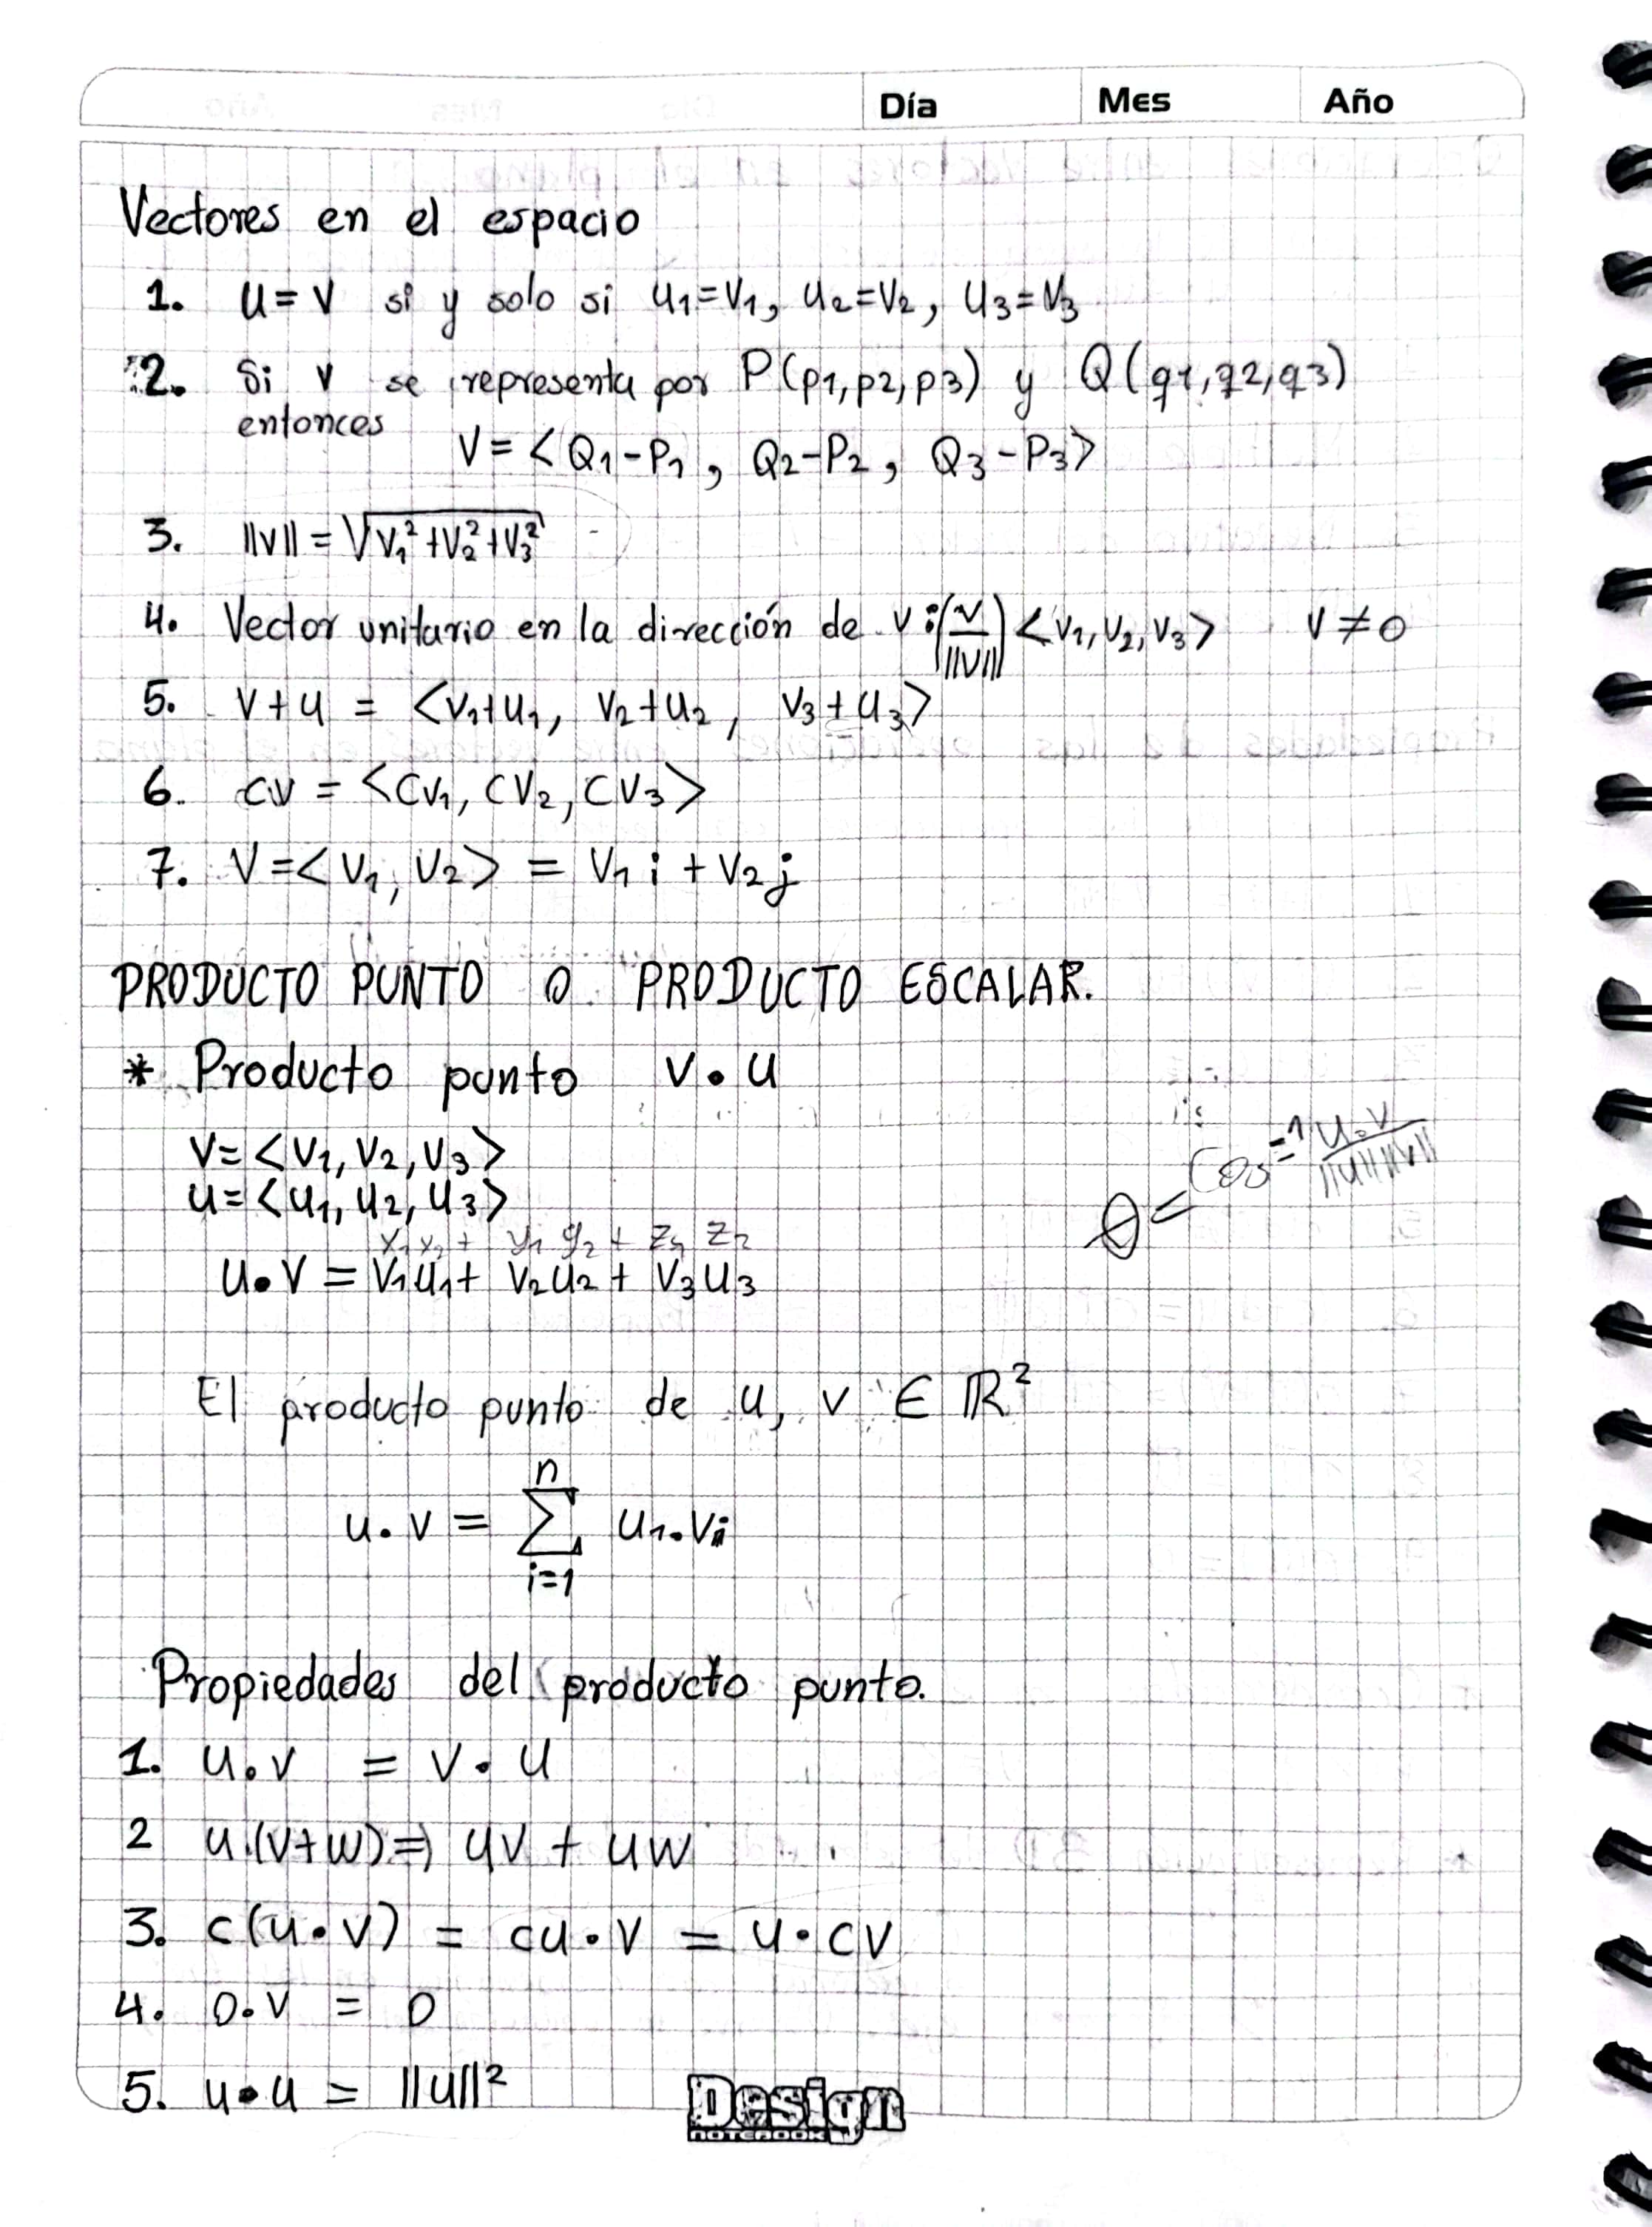 Día Mes Año
Vectores en el espacio
1. u = v si y solo si u1=v1, u2=v2, u3=v3
2. Si v se representa por P(p1,p2,p3) y Q(q1,q2,q3)
entonces
V = <Q1-P1, Q2-P2, Q3-P3>
3. ||v|| = √v1²+v2²+v3²
4. Vector unitario en la dirección de v: (v/||v||) <v1, v2, v3> v ≠ 0
5. v+u = <v1+u1, v2+u2, v3+u3>
6. cv = <cv1, cv2, cv3>
7. V = <v1, v2> = v1 i + v2 j
PRODUCTO PUNTO O PRODUCTO ESCALAR.
* Producto punto v • u
v = <v1, v2, v3>
u = <u1, u2, u3>
θ = Cos⁻¹ u.v/||u|| ||v||
x1 x2 + y1 y2 + z1 z2
u • v = v1u1 + v2u2 + v3u3
El producto punto de u, v ∈ ℝ²
n
u . v = ∑ u1.vi
i=1
Propiedades del producto punto.
1. u.v = v.u
2 u.(v+w) => uv + uw
3. c(u•v) = cu•v = u•cv
4. 0.v = 0
5. u•u = ||u||²
Design
NOTEBOOK